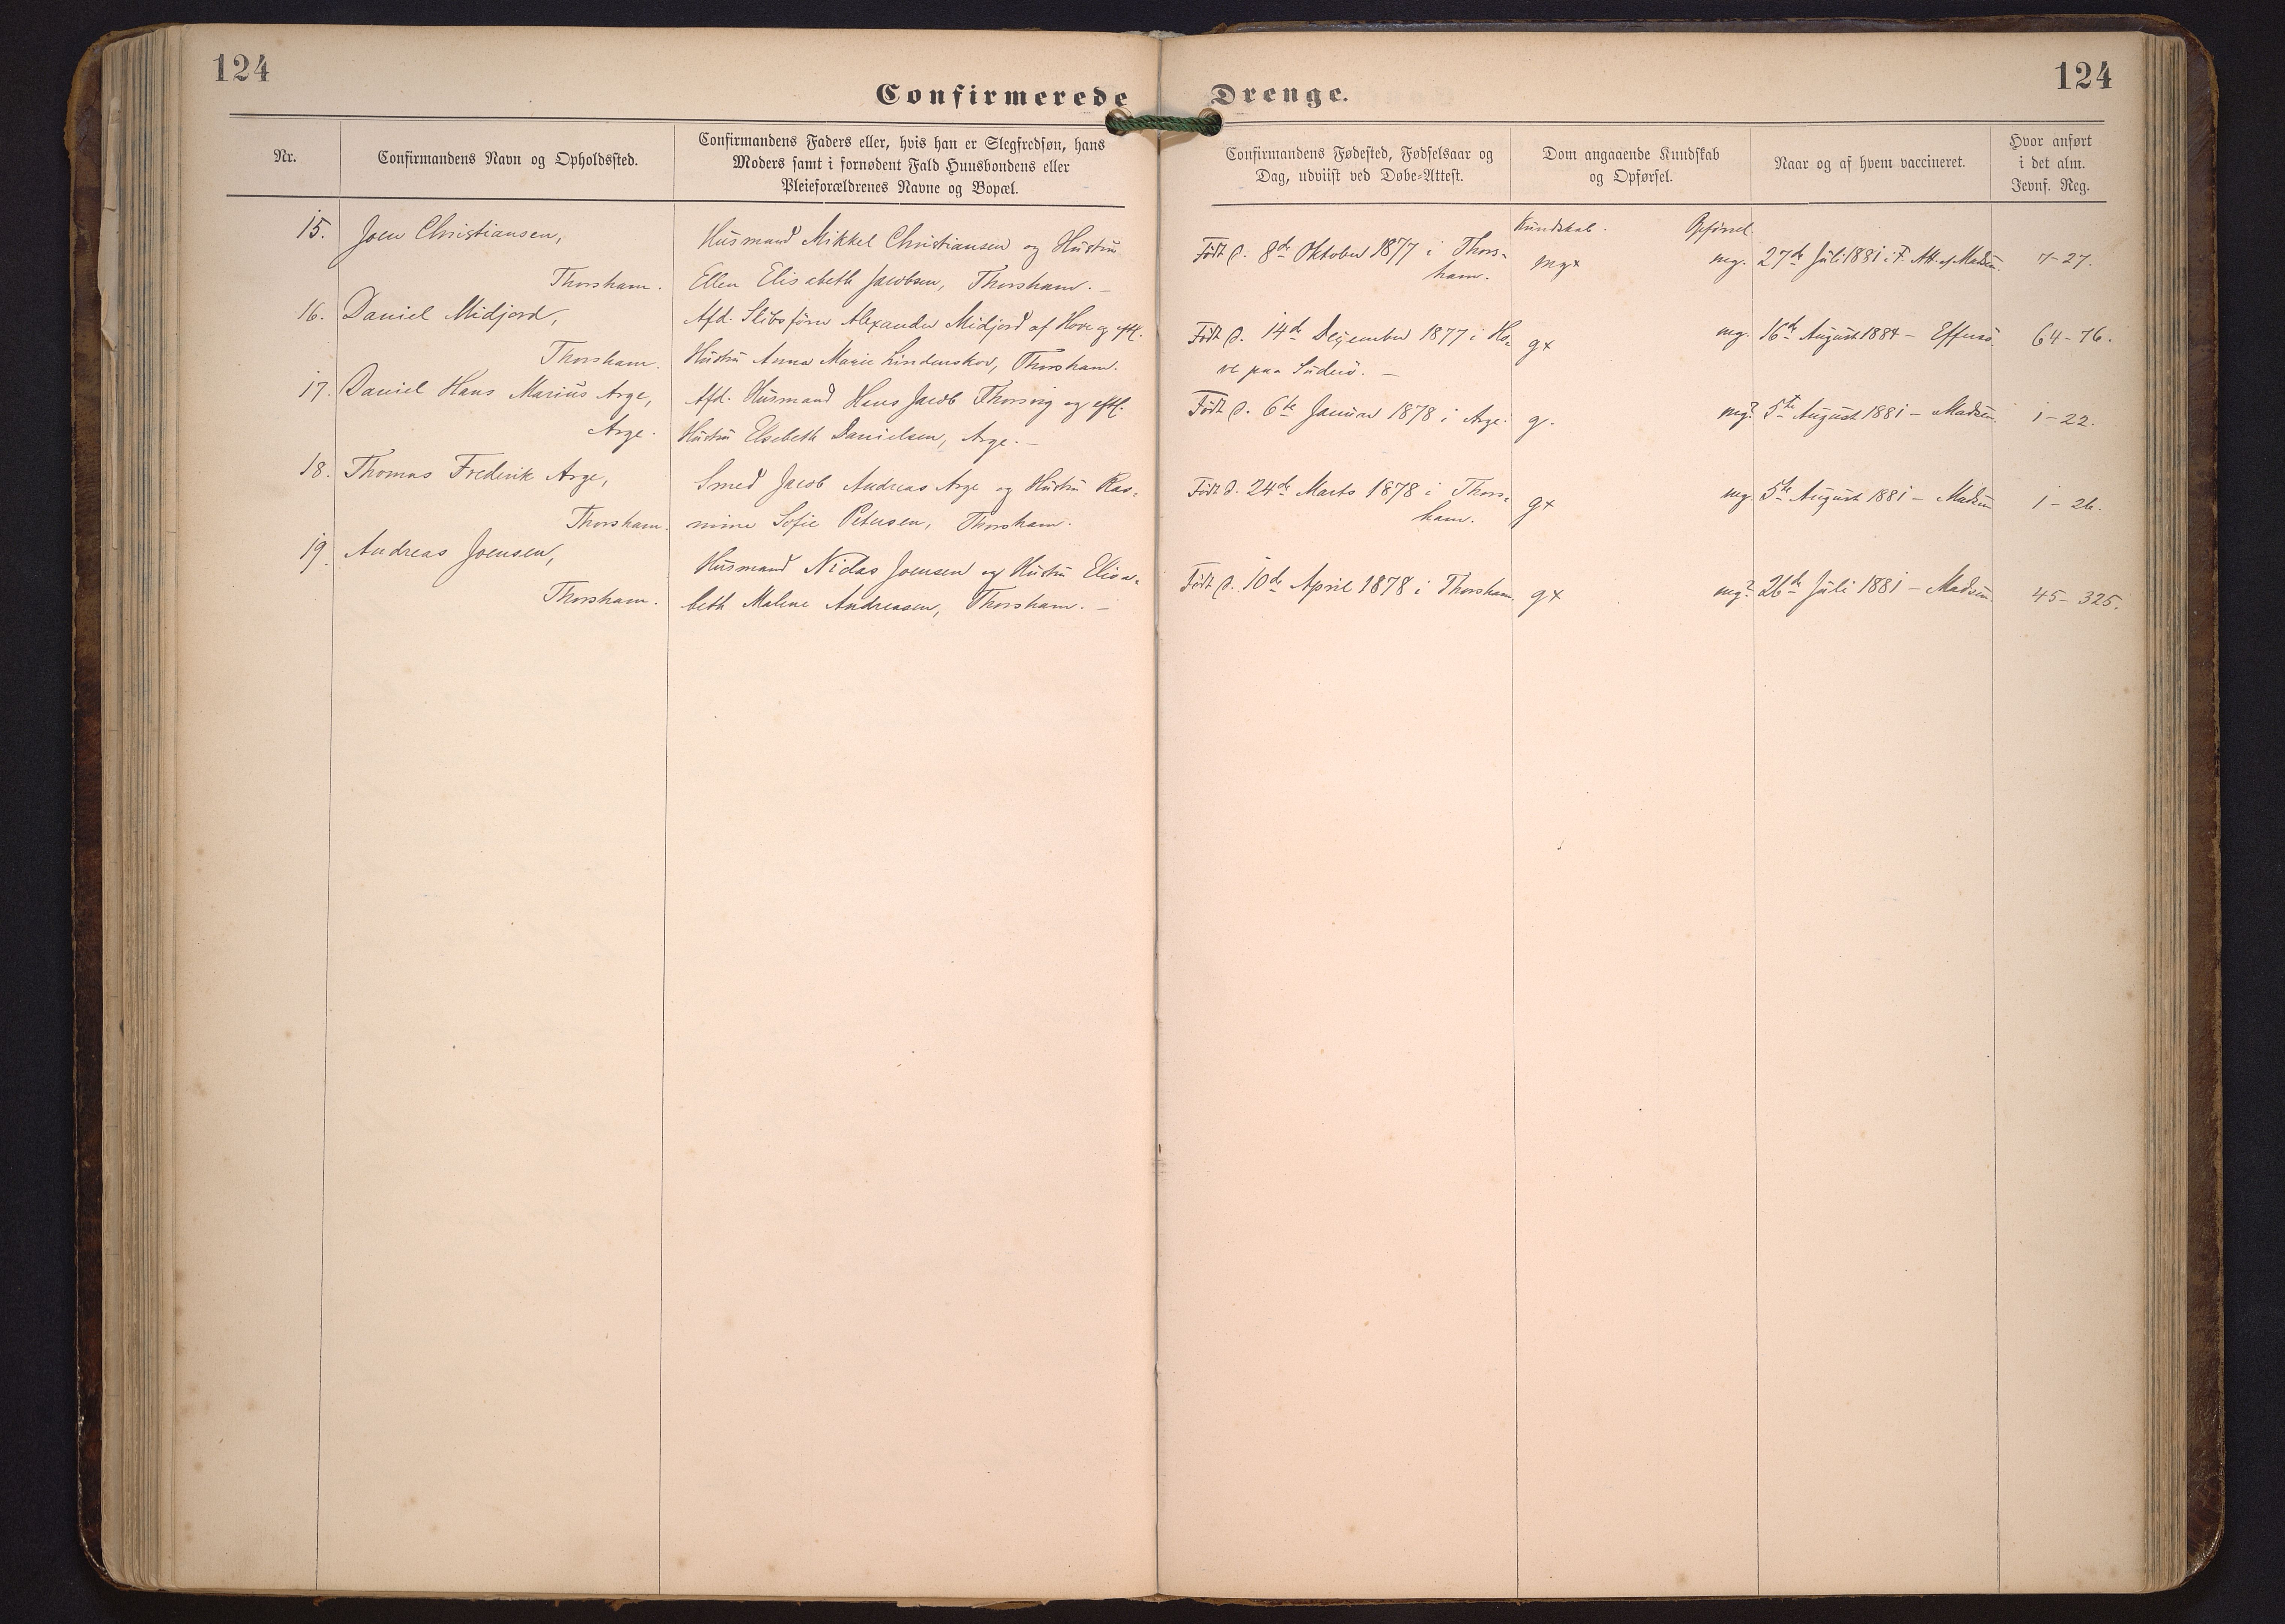 124
124
Confirmerede Drenge.
Nr.
Confirmandens Navn og Opholdssted.
Confirmandens Faders eller, hvis han er Slegfredsøn, hans
Moders samt i fornødent Fald Huusbondens eller
Pleieforældrenes Navne og Bopæl.
Confirmandens Fødested, Fødselsaar og
Dag, udviist ved Døbe-Attest.
Dom angaaende Kundskab
og Opførsel.
Naar og af hvem vaccineret.
Hvor anført
i det alm.
Jevnf. Reg.
Kundskab. Opførsel.
15. Joen Christiansen,
Thorshavn.
Husmand Mikkel Christiansen og Hustru
Ellen Elisabeth Jacobsen, Thorshavn. –
Født d. 8de Oktober 1877 i Thors-
havn.
mgx mg.
27de Juli 1881 i F. Att. af Madsen.
7-27.
16. Daniel Midjord,
Thorshavn.
Afd. Skibsfører Alexander Midjord af Hove og eftl.
Hustru Anna Marie Lindenskov, Thorshavn.
Født d. 14de Dezember 1877 i Ho-
ve paa Süderö. –
gx mg.
16de August 1884 – Effersö.
64-76.
17. Daniel Hans Marius Arge,
Arge.
Afd. Husmand Hans Jacob Thorsvig og eftl.
Hustru Elsebeth Danielsen, Arge. –
Født d. 6te Januar 1878 i Arge.
g. mg?
5te August 1881 – Madsen.
1-22.
18. Thomas Frederik Arge,
Thorshavn.
Smed Jacob Andreas Arge og Hustru Ras-
mine Sofie Petersen, Thorshavn.
Født d. 24de Marts 1878 i Thors-
havn.
gx mg.
5te August 1881 – Madsen
1-26.
19. Andreas Joensen,
Thorshavn.
Husmand Niclas Joensen og Hustru Elisa-
beth Malene Andreasen, Thorshavn. –
Født d. 10de April 1878 i Thorshavn
gx mg?
26de Juli 1881 – Madsen.
45-325.